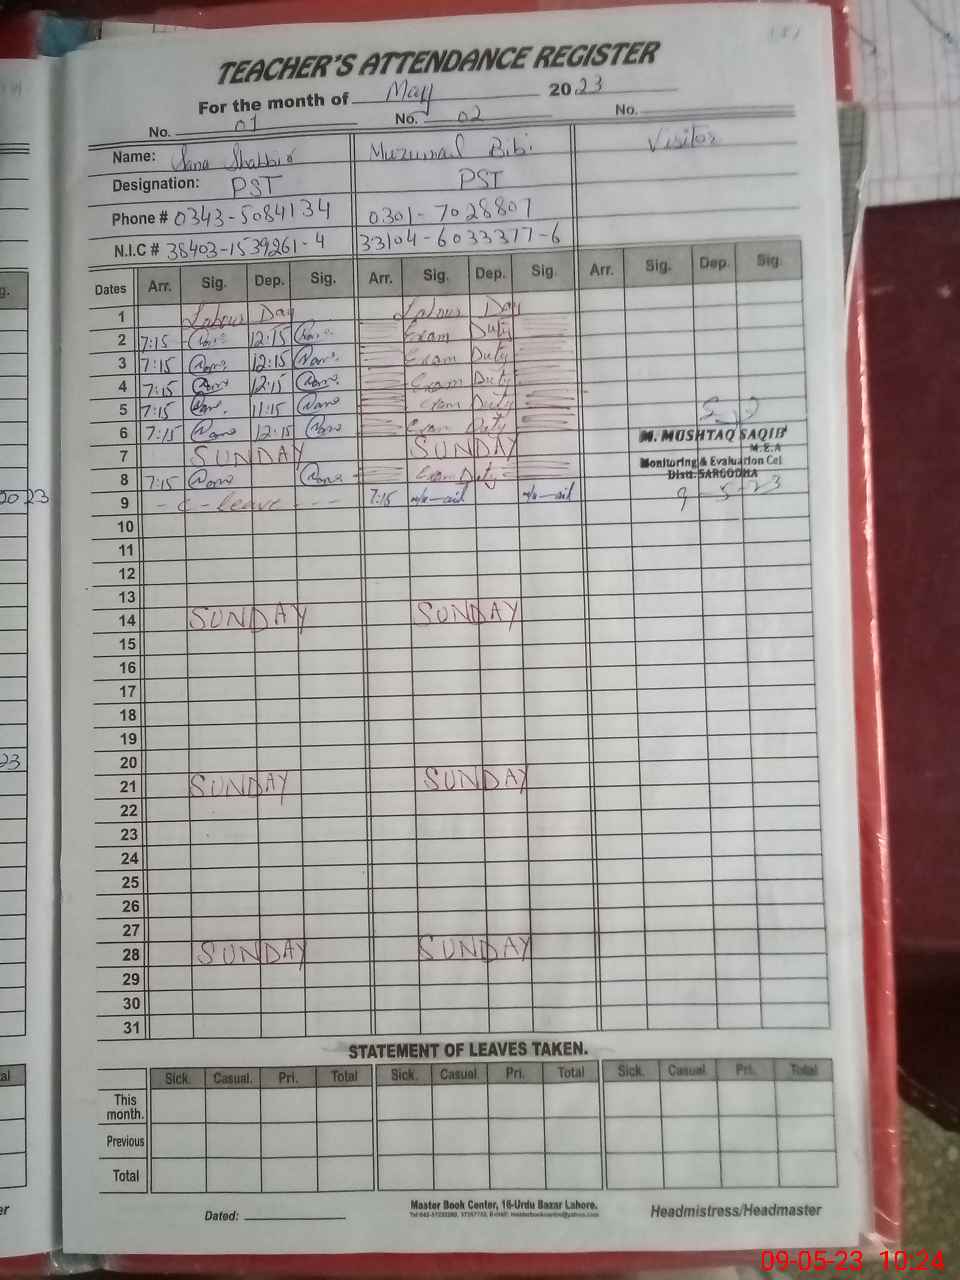 TEACHER'S ATTENDANCE REGISTER
For the month of May 2023
No. 01 No. 02 No.
Name: Sana Shabbir Muzumail Bibi Visitor
Designation: PST PST
Phone # 0343-5084134 0301-7028807
N.I.C # 38403-1539261-4 33104-6033377-6
Dates Arr. Sig. Dep. Sig. Arr. Sig. Dep. Sig. Arr. Sig. Dep. Sig.
1 Labour Day Labour Day
2 7:15 12:15 Exam Duty
3 7:15 12:15 Exam Duty
4 7:15 12:15 Exam Duty
5 7:15 11:15 Exam Duty
6 7:15 12:15 Exam Duty
M. MUSHTAQ SAQIB
M.E.A
7 SUNDAY SUNDAY
Monitoring & Evaluation Cel
Distt. SARGODHA
8 7:15 Exam Duty
9-5-23
9 - C - leave - - - 7:15
10
11
12
13
14 SUNDAY SUNDAY
15
16
17
18
19
20
21 SUNDAY SUNDAY
22
23
24
25
26
27
28 SUNDAY SUNDAY
29
30
31
STATEMENT OF LEAVES TAKEN.
Sick. Casual. Pri. Total Sick. Casual. Pri. Total Sick. Casual. Pri. Total
This month.
Previous
Total
Dated:
Master Book Center, 16-Urdu Bazar Lahore.
Headmistress/Headmaster
09-05-23 10:24